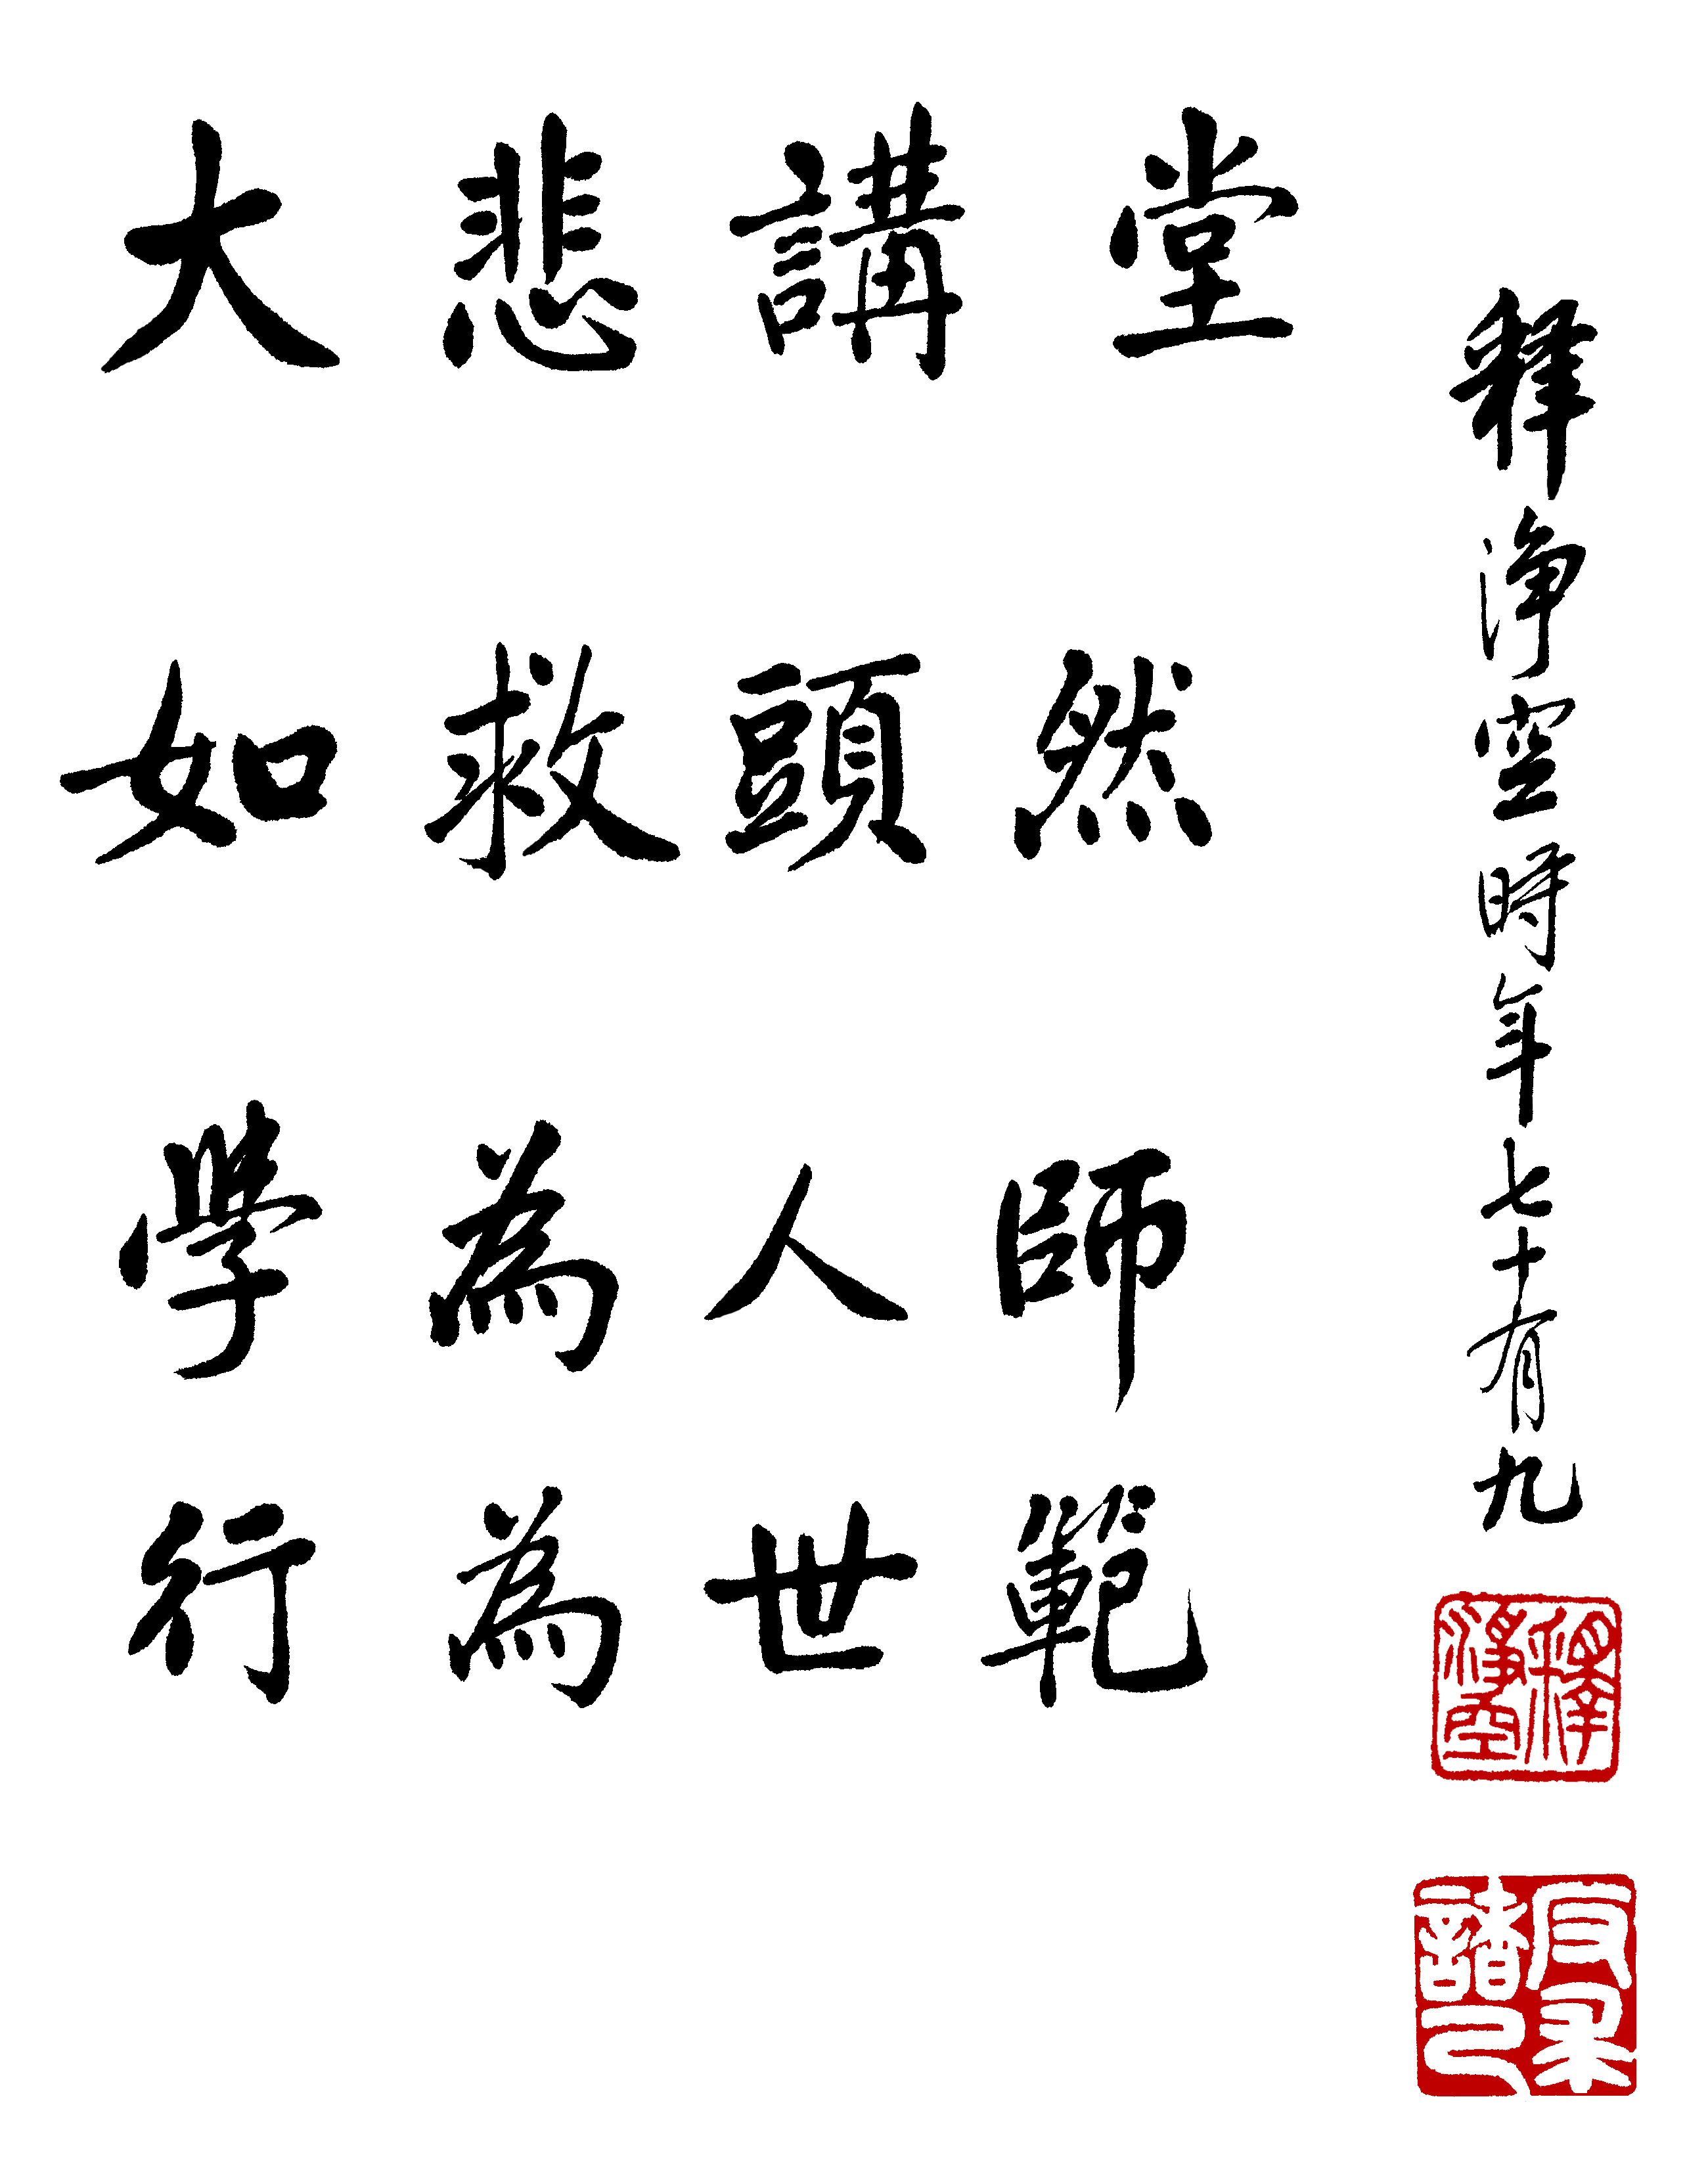 大悲講堂
如救頭然
學為人師
行為世範
释淨空時年七十有九
釋淨空
反求諸己